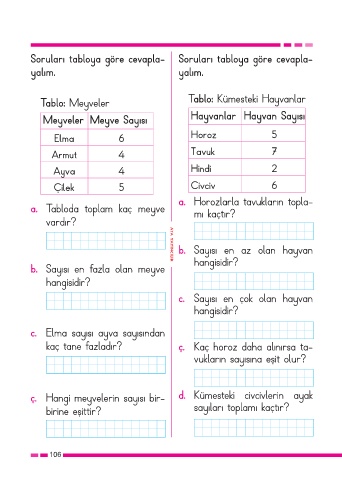 Soruları tabloya göre cevapla-
yalım.
Tablo: Meyveler
Meyveler Meyve Sayısı
Elma 6
Armut 4
Ayva 4
Çilek 5
a. Tabloda toplam kaç meyve
vardır?
b. Sayısı en fazla olan meyve
hangisidir?
c. Elma sayısı ayva sayısından
kaç tane fazladır?
ç. Hangi meyvelerin sayısı bir-
birine eşittir?
Soruları tabloya göre cevapla-
yalım.
Tablo: Kümesteki Hayvanlar
Hayvanlar Hayvan Sayısı
Horoz 5
Tavuk 7
Hindi 2
Civciv 6
a. Horozlarla tavukların topla-
mı kaçtır?
b. Sayısı en az olan hayvan
hangisidir?
c. Sayısı en çok olan hayvan
hangisidir?
ç. Kaç horoz daha alınırsa ta-
vukların sayısına eşit olur?
d. Kümesteki civcivlerin ayak
sayıları toplamı kaçtır?
106